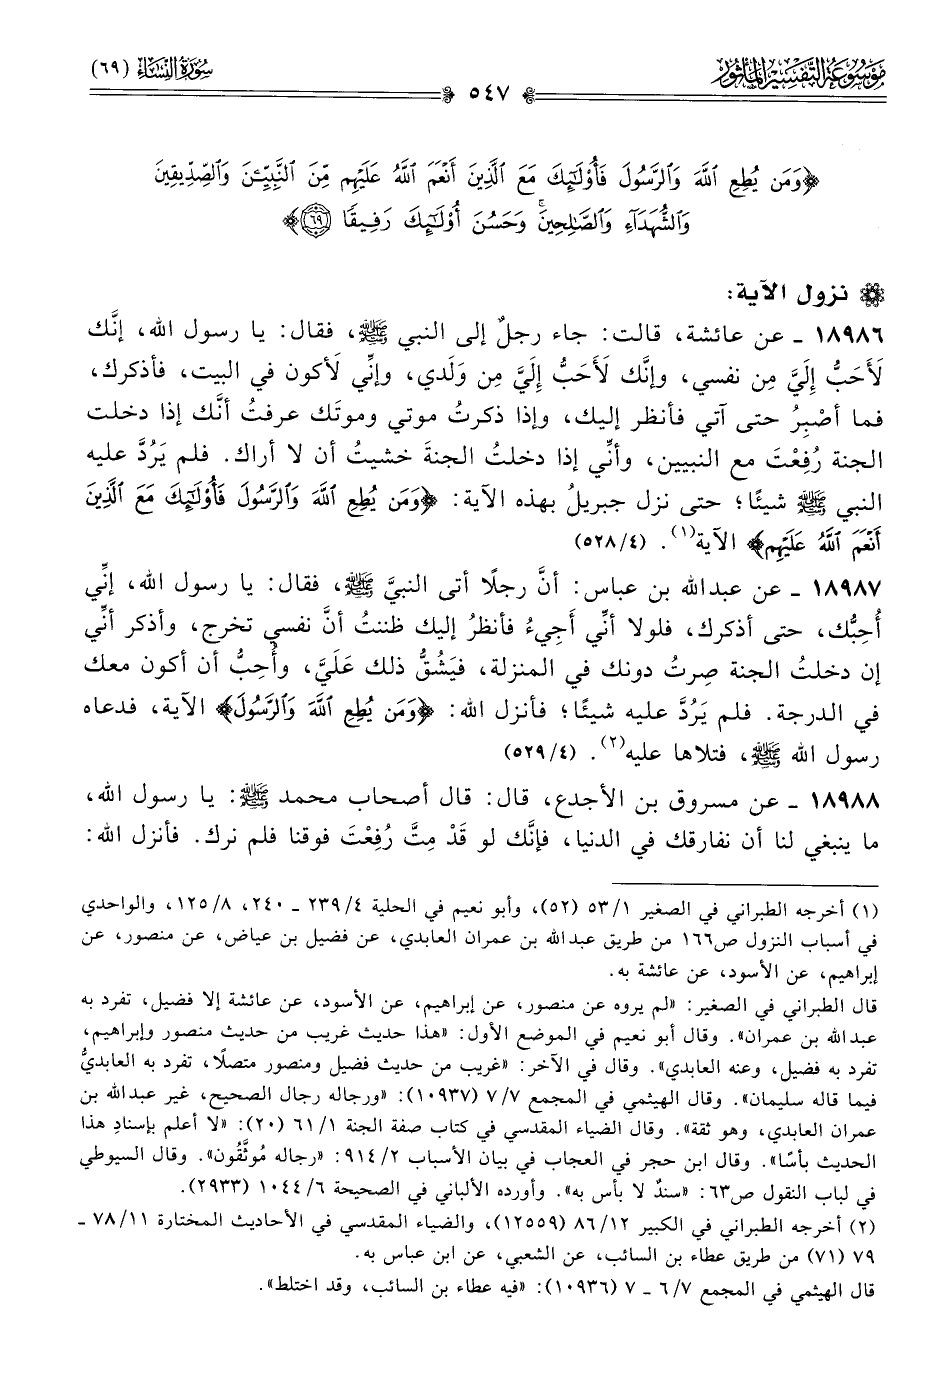 موسوعة التفسير المأثور
سورة النساء (٦٩)
٥٤٧
﴿وَمَن يُطِعِ ٱللَّهَ وَٱلرَّسُولَ فَأُوْلَٰٓئِكَ مَعَ ٱلَّذِينَ أَنْعَمَ ٱللَّهُ عَلَيْهِم مِّنَ ٱلنَّبِيِّـۧنَ وَٱلصِّدِّيقِينَ
وَٱلشُّهَدَآءِ وَٱلصَّٰلِحِينَۚ وَحَسُنَ أُوْلَٰٓئِكَ رَفِيقًا ٦٩﴾
نزول الآية:
١٨٩٨٦ ـ عن عائشة، قالت: جاء رجلٌ إلى النبي ﷺ، فقال: يا رسول الله، إنَّك
لَأَحَبُّ إِلَيَّ مِن نفسي، وإنَّك لَأحَبُّ إِلَيَّ مِن وَلَدي، وإنِّي لَأكون في البيت، فأذكرك،
فما أصْبِرُ حتى آتي فأنظر إليك، وإذا ذكرتُ موتي وموتَك عرفتُ أنَّك إذا دخلت
الجنة رُفِعْتَ مع النبيين، وأنِّي إذا دخلتُ الجنةَ خشيتُ أن لا أراك. فلم يَرُدَّ عليه
النبي ﷺ شيئًا؛ حتى نزل جبريلُ بهذه الآية: ﴿وَمَن يُطِعِ ٱللَّهَ وَٱلرَّسُولَ فَأُوْلَٰٓئِكَ مَعَ ٱلَّذِينَ
أَنْعَمَ ٱللَّهُ عَلَيْهِم﴾ الآية(١). (٤/٥٢٨)
١٨٩٨٧ ـ عن عبدالله بن عباس: أنَّ رجلًا أتى النبيَّ ﷺ، فقال: يا رسول الله، إنِّي
أُحِبُّك، حتى أذكرك، فلولا أنِّي أَجِيءُ فأنظرُ إليك ظننتُ أنَّ نفسي تخرج، وأذكر أنِّي
إن دخلتُ الجنة صِرتُ دونك في المنزلة، فيَشُقُّ ذلك عَلَيَّ، وأُحِبُّ أن أكون معك
في الدرجة. فلم يَرُدَّ عليه شيئًا؛ فأنزل الله: ﴿وَمَن يُطِعِ ٱللَّهَ وَٱلرَّسُولَ﴾ الآية، فدعاه
رسول الله ﷺ، فتلاها عليه(٢). (٤/٥٢٩)
١٨٩٨٨ ـ عن مسروق بن الأجدع، قال: قال أصحاب محمد ﷺ: يا رسول الله،
ما ينبغي لنا أن نفارقك في الدنيا، فإنَّك لو قَدْ مِتَّ رُفِعْتَ فوقنا فلم نرك. فأنزل الله:
(١) أخرجه الطبراني في الصغير ١/٥٣ (٥٢)، وأبو نعيم في الحلية ٤/٢٣٩ ـ ٢٤٠، ٨/١٢٥، والواحدي
في أسباب النزول ص١٦٦ من طريق عبدالله بن عمران العابدي، عن فضيل بن عياض، عن منصور، عن
إبراهيم، عن الأسود، عن عائشة به.
قال الطبراني في الصغير: «لم يروه عن منصور، عن إبراهيم، عن الأسود، عن عائشة إلا فضيل، تفرد به
عبدالله بن عمران». وقال أبو نعيم في الموضع الأول: «هذا حديث غريب من حديث منصور وإبراهيم،
تفرد به فضيل، وعنه العابدي». وقال في الآخر: «غريب من حديث فضيل ومنصور متصلًا، تفرد به العابديُّ
فيما قاله سليمان». وقال الهيثمي في المجمع ٧/٧ (١٠٩٣٧): «ورجاله رجال الصحيح، غير عبدالله بن
عمران العابدي، وهو ثقة». وقال الضياء المقدسي في كتاب صفة الجنة ١/٦١ (٢٠): «لا أعلم بإسنادِ هذا
الحديث بأسًا». وقال ابن حجر في العجاب في بيان الأسباب ٢/٩١٤: «رجاله مُوثَّقون». وقال السيوطي
في لباب النقول ص٦٣: «سندٌ لا بأس به». وأورده الألباني في الصحيحة ٦/١٠٤٤ (٢٩٣٣).
(٢) أخرجه الطبراني في الكبير ١٢/٨٦ (١٢٥٥٩)، والضياء المقدسي في الأحاديث المختارة ١١/٧٨ ـ
٧٩ (٧١) من طريق عطاء بن السائب، عن الشعبي، عن ابن عباس به.
قال الهيثمي في المجمع ٧/٦ ـ ٧ (١٠٩٣٦): «فيه عطاء بن السائب، وقد اختلط».